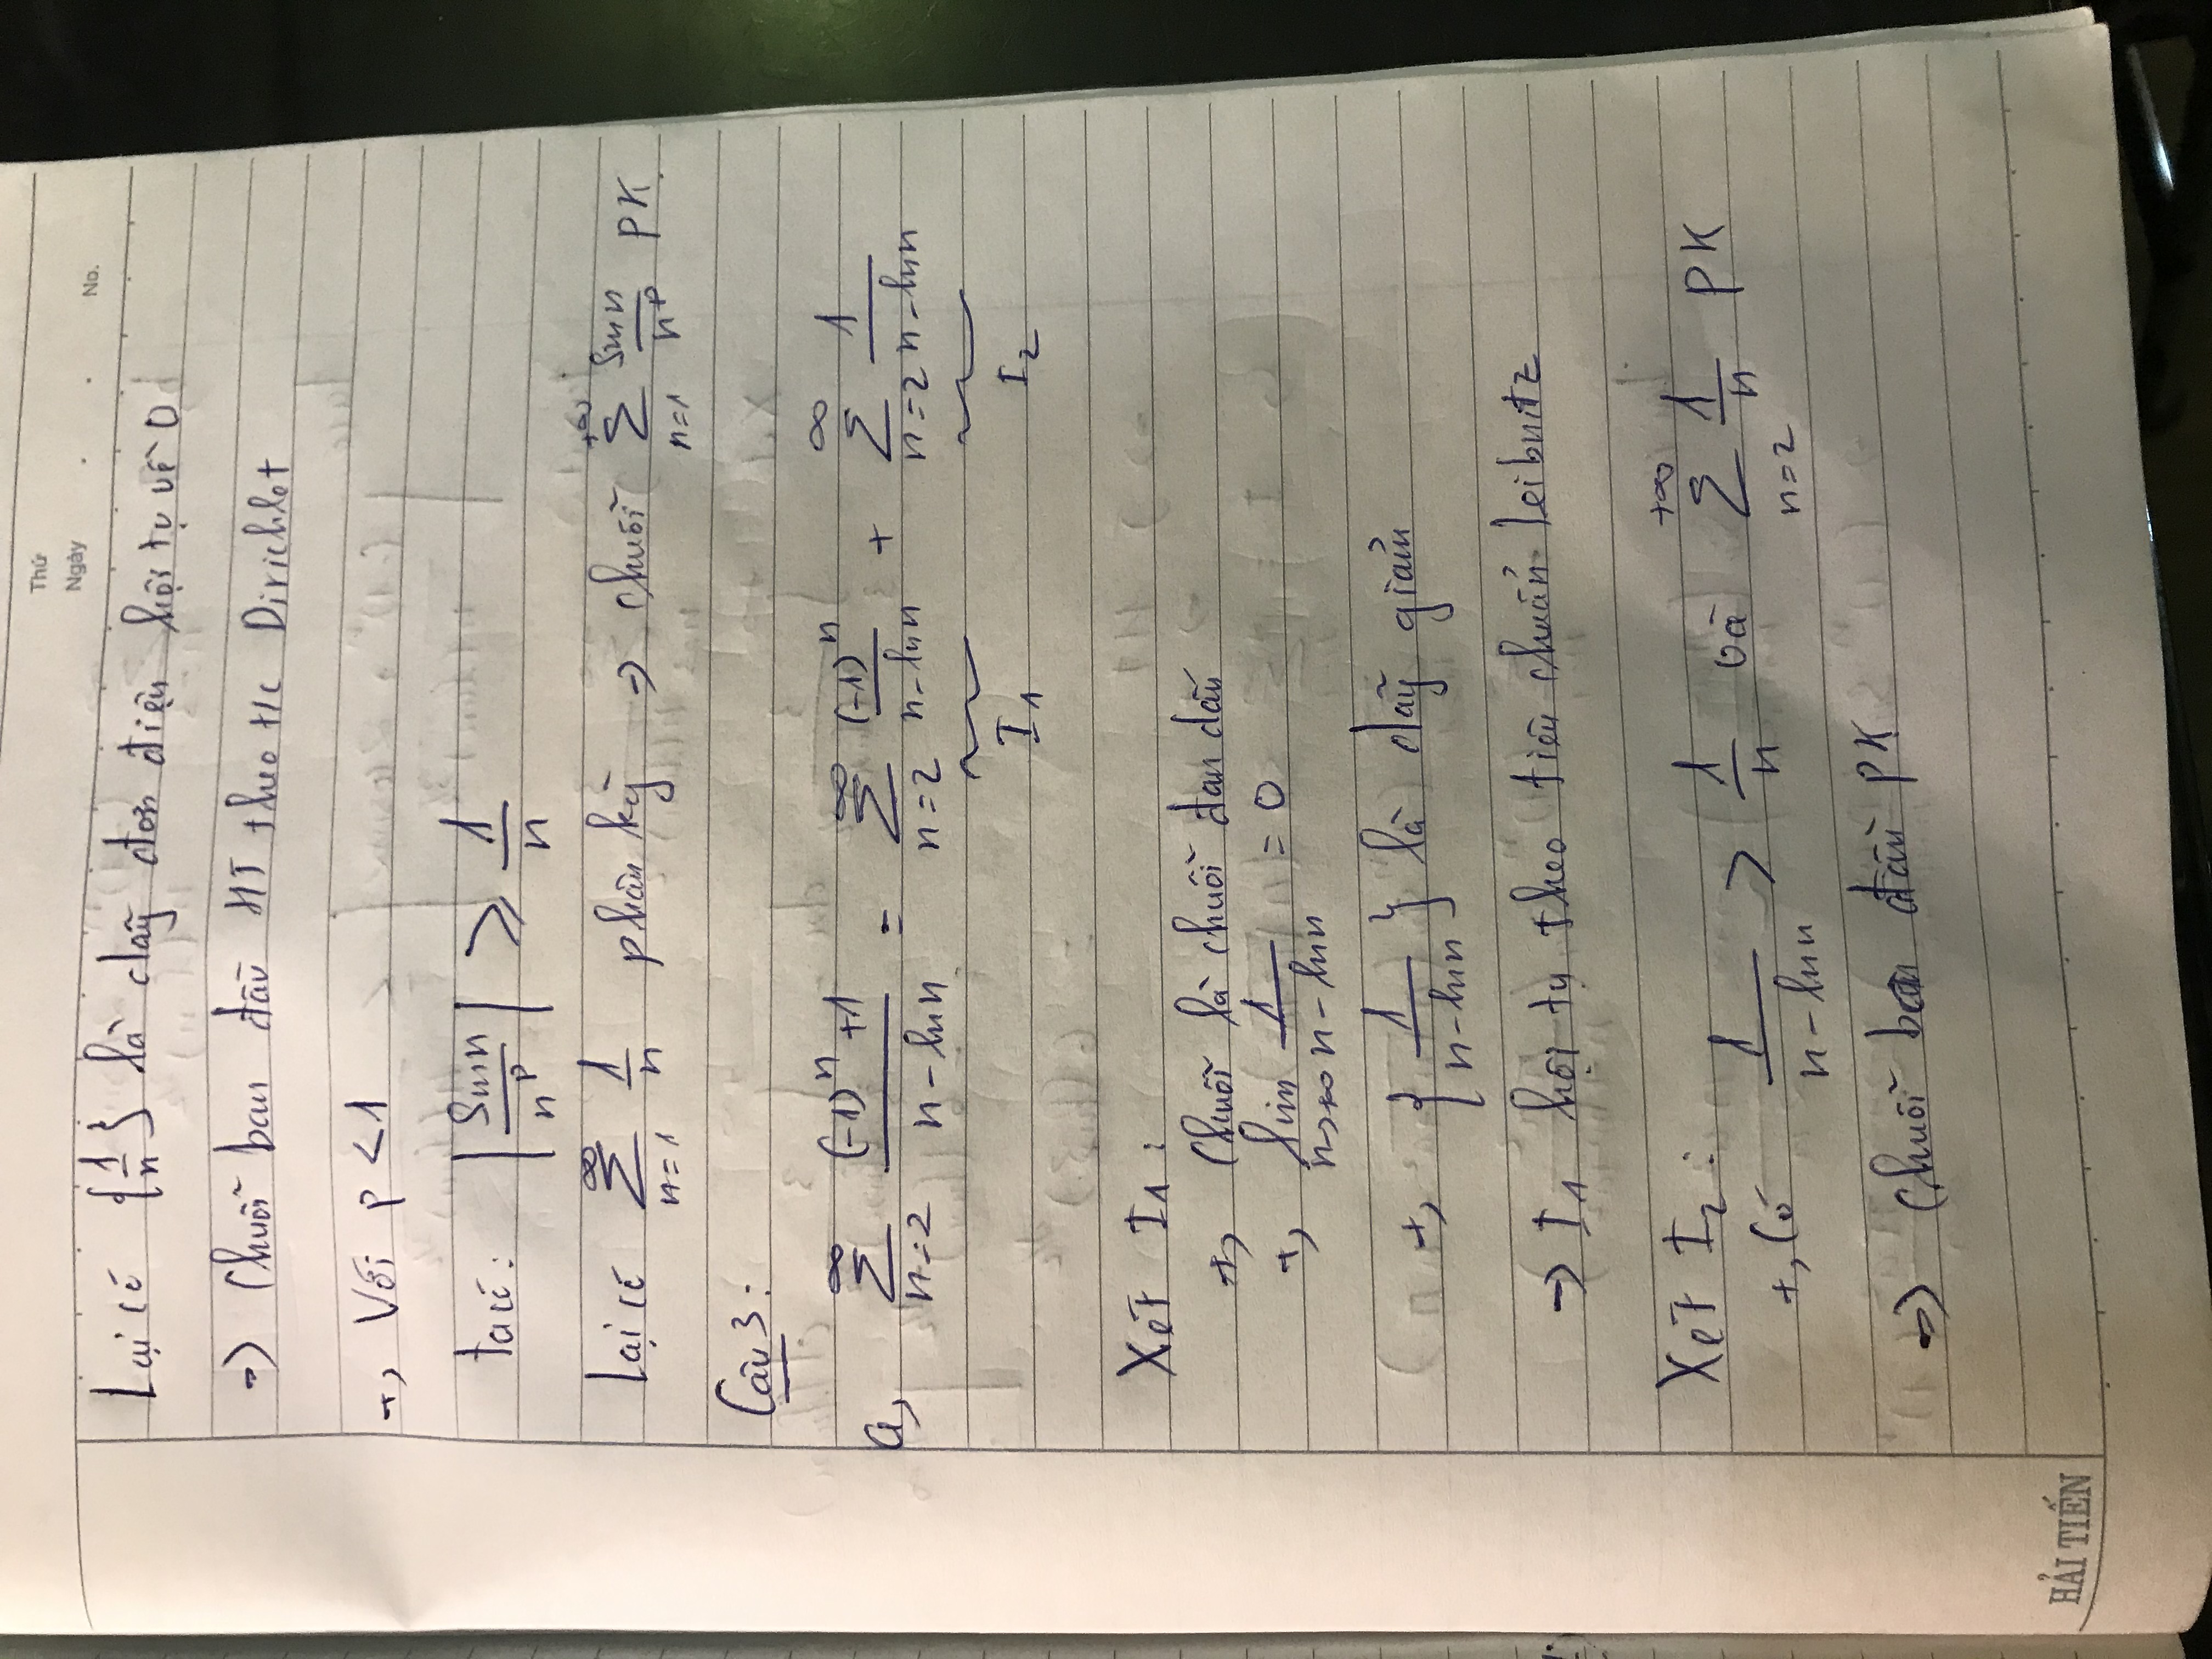 Thứ
Ngày
No.
Lại có {1/n} là dãy đơn điệu hội tụ về 0
=> Chuỗi ban đầu HT theo t/c Dirichlet
+, Với p < 1
ta có: |sin n / n^p| ≥ 1/n
Lại có ∑_{n=1}^{∞} 1/n phân kỳ → chuỗi ∑_{n=1}^{+∞} sin n / n^p PK.
Câu 3:
a, ∑_{n=2}^{∞} ((-1)^n + 1)/(n - ln n) = ∑_{n=2}^{∞} (-1)^n/(n - ln n) + ∑_{n=2}^{∞} 1/(n - ln n)
I₁ I₂
Xét I₁ :
+, Chuỗi là chuỗi đan dấu
+, lim_{n→+∞} 1/(n - ln n) = 0
+, {1/(n - ln n)} là dãy giảm
→ I₁ hội tụ theo tiêu chuẩn Leibnitz
Xét I₂ :
+, Có 1/(n - ln n) > 1/n và ∑_{n=2}^{+∞} 1/n PK
=> Chuỗi ban đầu PK
HẢI TIẾN